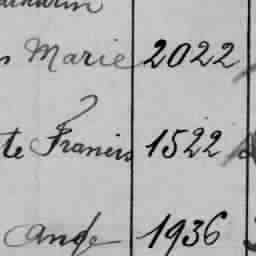 Marie 2022
te Francis 1522
Ange 1936